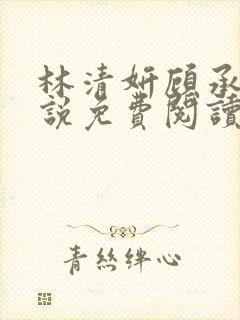 林清妍顾承
說免費閱讀
青絲絆心